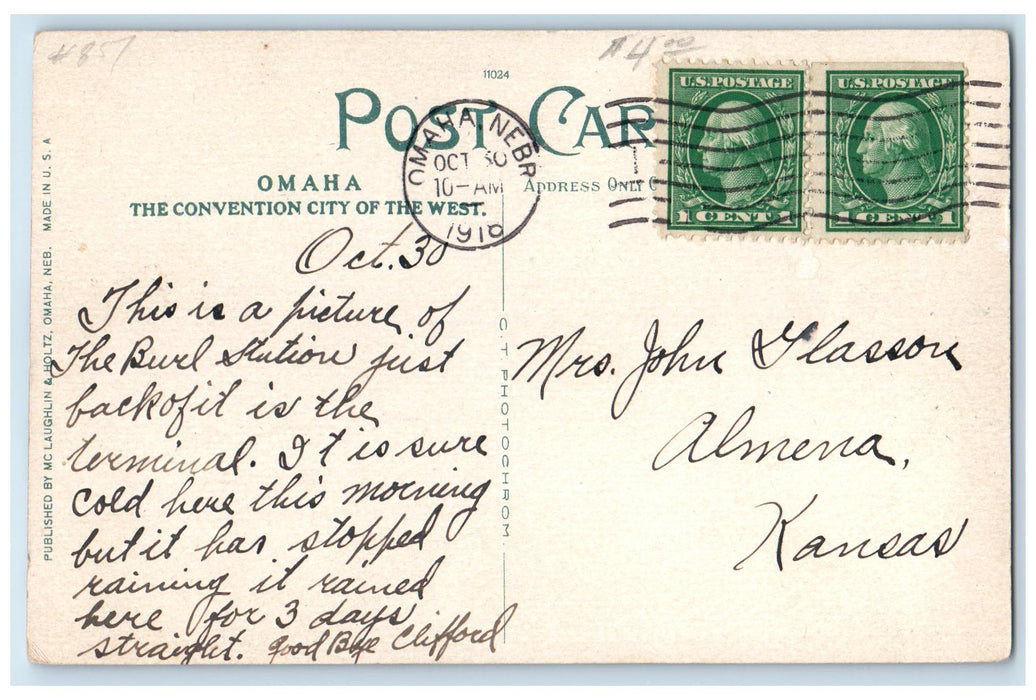 #857
$4.00
11024
POST CAR
OMAHA, NEBR
OCT 30
10-AM
1916
U.S. POSTAGE
1 CENT 1
U.S. POSTAGE
1 CENT 1
OMAHA
THE CONVENTION CITY OF THE WEST.
ADDRESS ONLY
PUBLISHED BY MC LAUGHLIN & HOLTZ, OMAHA, NEB. MADE IN U.S.A
C. T. PHOTOCHROM
Oct. 30
This is a picture of
The Burl Station just
back of it is the
terminal. It is sure
cold here this morning
but it has stopped
raining it rained
here for 3 days
straight. good Bye Clifford
Mrs. John Glasson
Almena,
Kansas